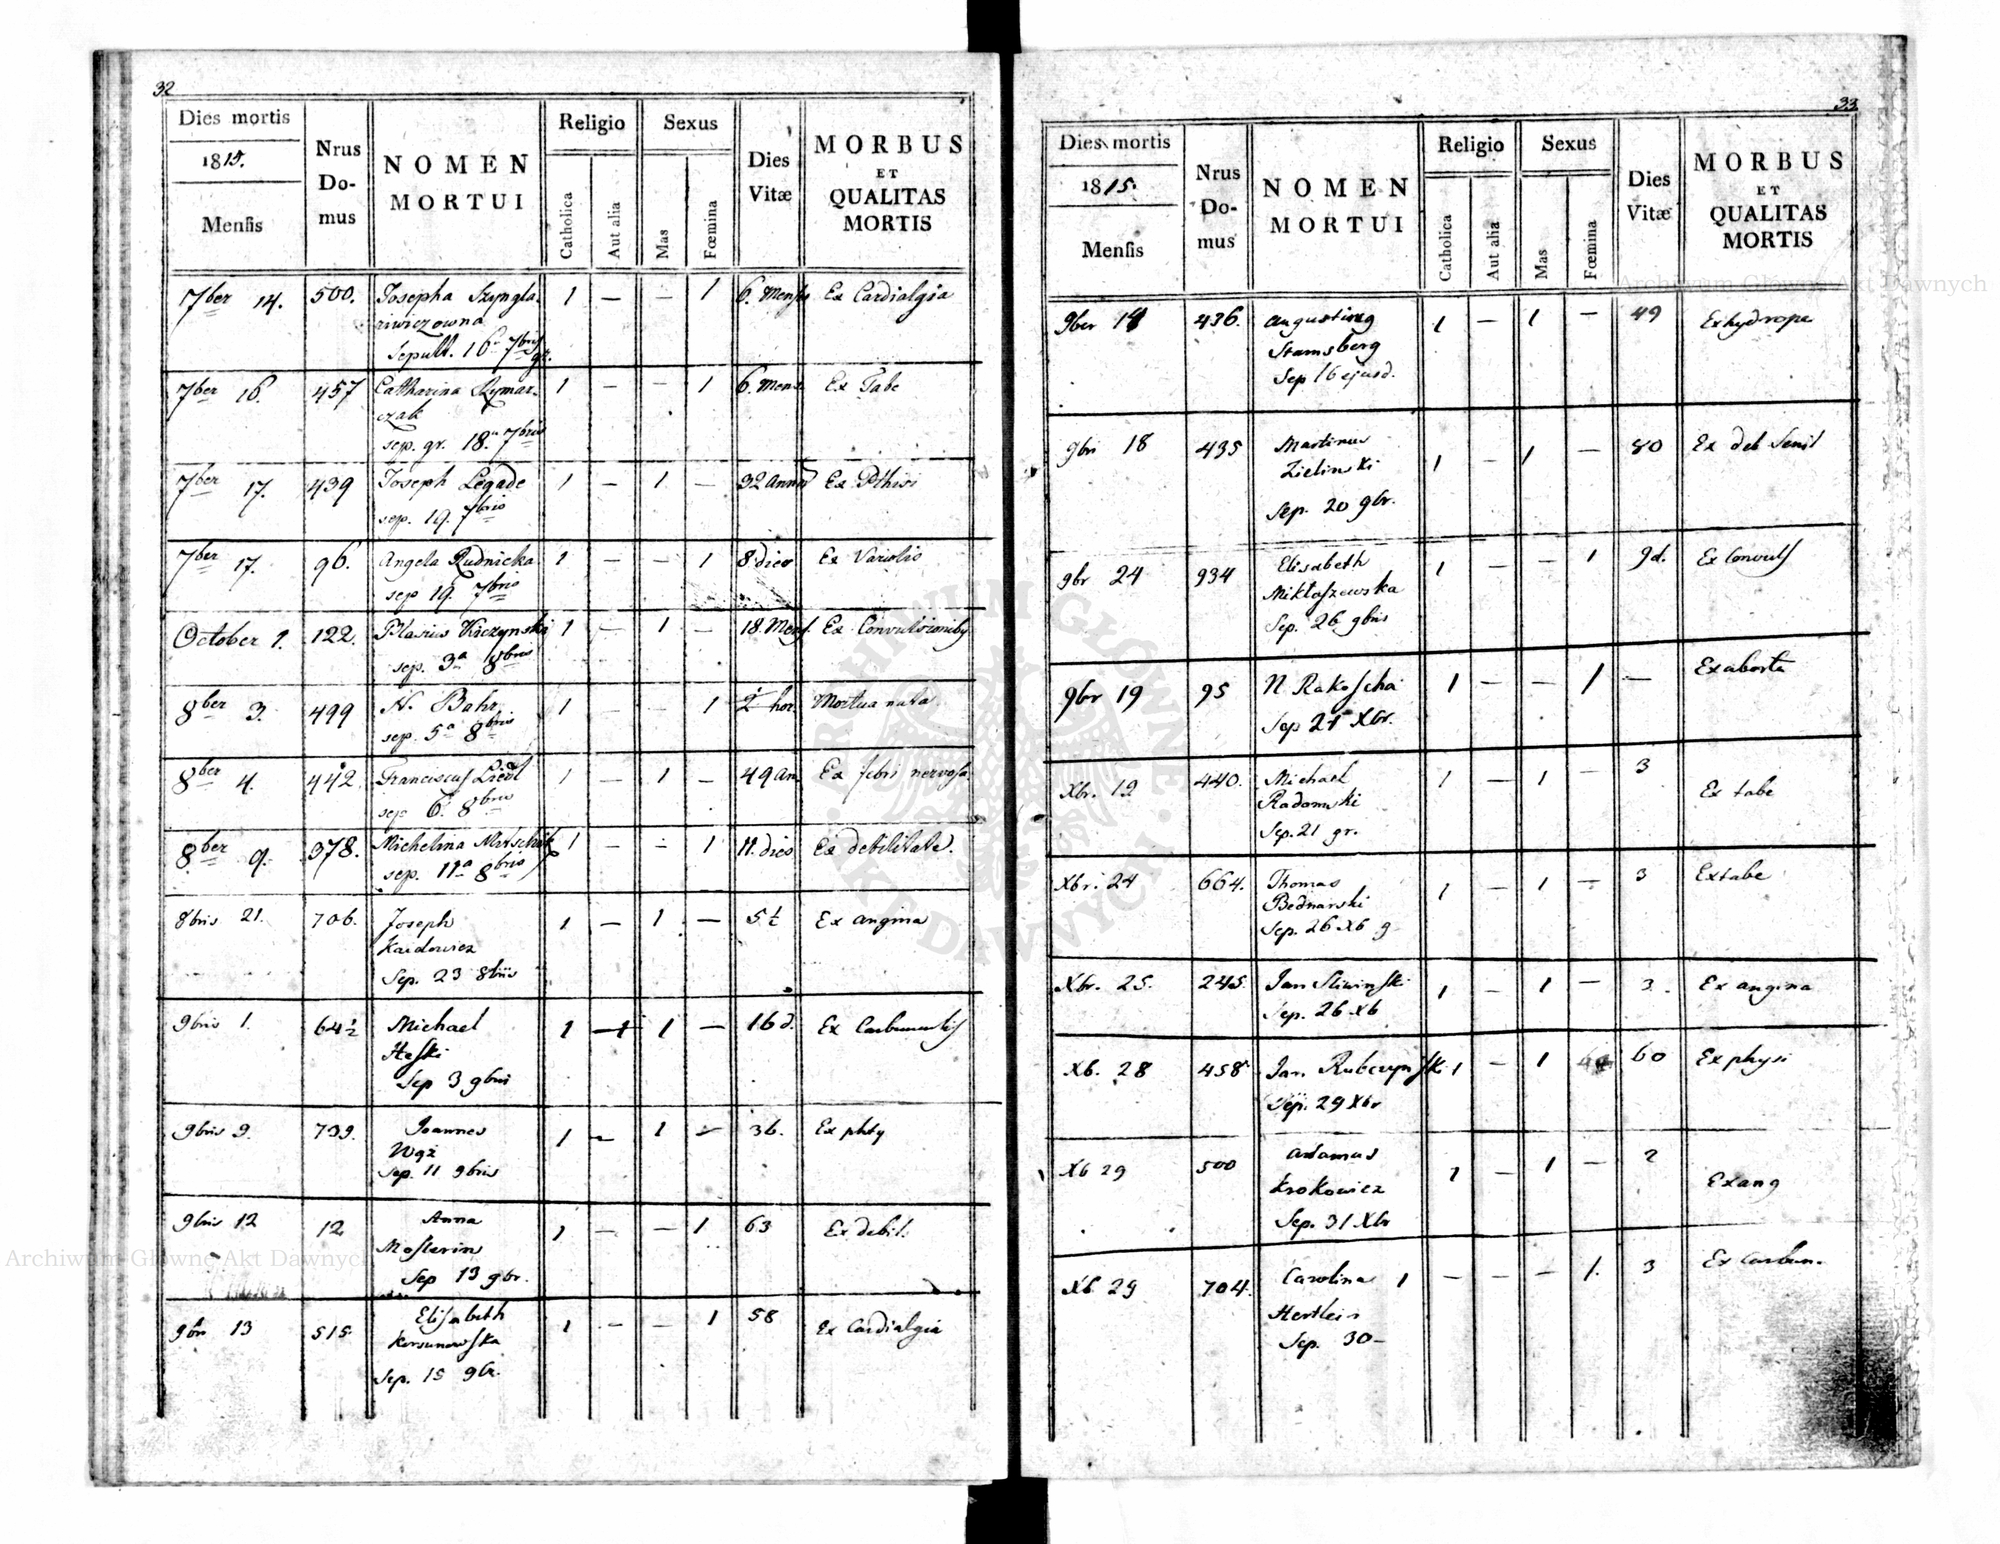 32
Dies mortis
1815.
Mensis
Nrus Domus
NOMEN MORTUI
Religio
Catholica
Aut alia
Sexus
Mas
Fœmina
Dies Vitæ
MORBUS ET QUALITAS MORTIS
7ber 14. 500. Josepha Szyngla- 1 — — 1 6. Mens Ex Cardialgia
riwiczowna
Sepult. 16 7bris gr.
7ber 16. 457 Catharina Szymar- 1 — — 1 6. Mens. Ex Tabe
czak
sep. gr. 18. 7bris
7ber 17. 439 Joseph Legade 1 — 1 — 32 Annor Ex Pthisi
sep. 19. 7bris
7ber 17. 96. Angela Rudnicka 1 — — 1 8 dies Ex Variolis
sep 19. 7bris
October 1. 122. Blasius Kiczynski 1 — 1 — 18. Mens. Ex Convulsionibq
sep. 3a 8bris
8ber 3. 499 N. Bahr 1 — — 1 2 hor. Mortua nata
sep. 5a 8bris
8ber 4. 442 Franciscus Liedl 1 — 1 — 49 an. Ex febri nervosa
sep 6. 8bris
8ber 9. 378. Michelina Matschik 1 — — 1 11. dies Ex debilitate.
sep. 11a 8bris
8bris 21. 706. Joseph 1 — 1 — 5½ Ex angina
Kaidowicz
Sep. 23 8bris
9bris 1. 64½ Michael 1 — 1 — 16 d. Ex Carbunculis
Haski
Sep 3 9bris
9bris 9. 739. Joannes 1 — 1 — 36. Ex phty
Wąż
Sep. 11 9bris
9bris 12 12 Anna 1 — — 1 63 Ex debil.
Moslerin
Sep 13 9br.
9br 13 515. Elisabeth 1 — — 1 58 Ex Cardialgia
Korsunowska
Sep. 15 9br.
33
Dies mortis
1815.
Mensis
Nrus Domus
NOMEN MORTUI
Religio
Catholica
Aut alia
Sexus
Mas
Fœmina
Dies Vitæ
MORBUS ET QUALITAS MORTIS
9ber 14 436. Augustinq 1 — 1 — 49 Ex hydrope
Stamsberg
Sep 16 ejusd.
9bri 18 435 Martinus 1 — 1 — 80 Ex deb Senil
Zielinski
Sep. 20 9br.
9br 24 934 Elisabeth 1 — — 1 9 d. Ex Convuls
Miktaszewska
Sep. 26 9bris
9br 19 95 N Rakoscha 1 — — 1 — Ex aborte
Sep 21 Xbr.
Xbr. 19 440. Michael 1 — 1 — 3 Ex tabe
Radomski
Sep. 21 gr.
Xbr. 24 664. Thomas 1 — 1 — 3 Ex tabe
Bednarski
Sep. 26 Xb g
Xbr. 25. 245. Jan Sliwinski 1 — 1 — 3. Ex angina
Sep. 26 Xb
Xb. 28 458 Jan Rubczynsk 1 — 1 60 Ex physi
Sep. 29 Xbr
Xb 29 500 Adamus 1 — 1 — 2 Ex ang
Krokowicz
Sep. 31 Xbr
Xb 29 704. Carolina 1 — — 1. 3 Ex Carbun.
Hertlein
Sep. 30 —
Archiwum Główne Akt Dawnych
Archiwum Główne Akt Dawnych
ARCHIWUM GŁÓWNE AKT DAWNYCH